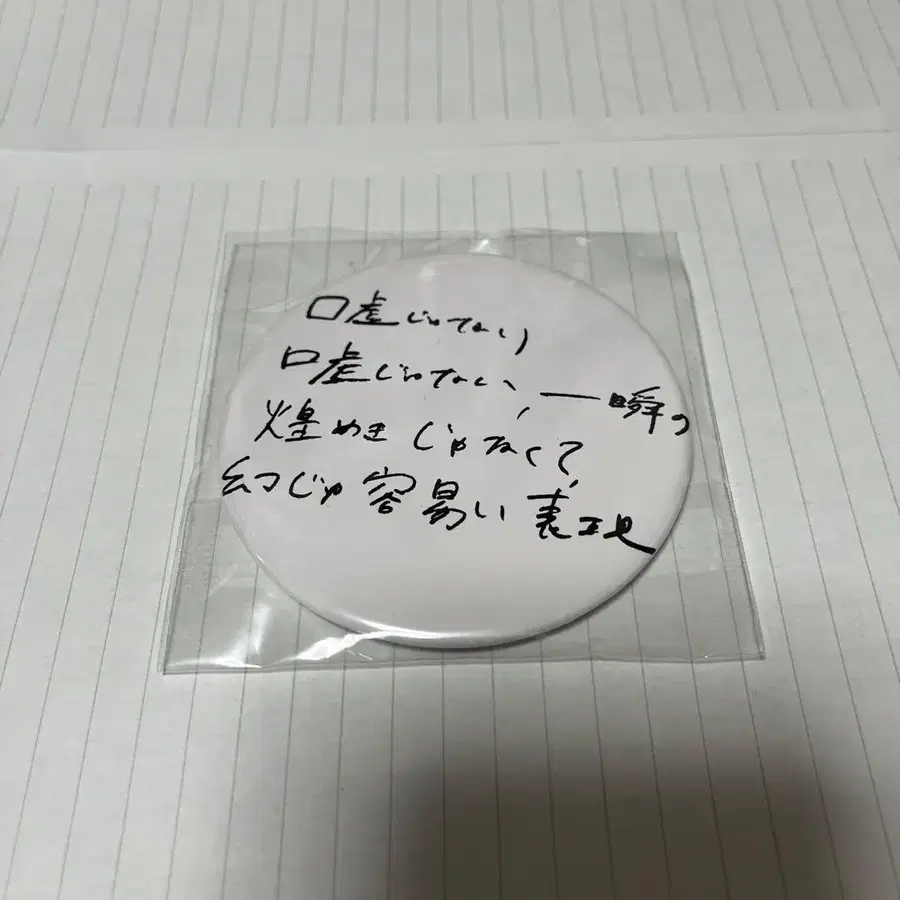 嘘じゃない
嘘じゃない、一瞬の
煌めきじゃなくて
幻じゃ容易い表現